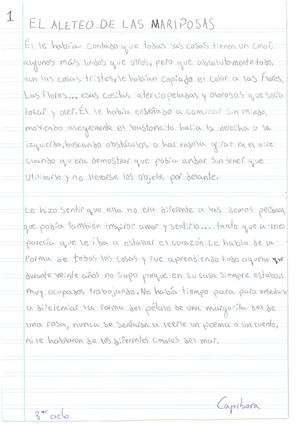 1
EL ALETEO DE LAS MARIPOSAS
Él le había contado que todas las cosas tienen un color,
algunos más lindos que otros, pero que absolutamente todo,
aun las cosas tristes, le habían copiado el color a las flores.
Las flores... esas cositas aterciopeladas y olorosas que solía
tocar y oler. Él le había enseñado a caminar sin miedo,
moviendo alegremente el bastoncito hacia la derecha o la
izquierda, buscando obstáculos o haciéndola girar en el aire
cuando quería demostrar que podía andar sin tener que
utilizarlo y no llevarse los objetos por delante.
Le hizo sentir que ella no era diferente a las demás personas,
que podía también inspirar amor y sentirlo.... tanto que a veces
parecía que le iba a estallar el corazón. Le habló de la
forma de todas las cosas y fue aprendiendo todo aquello que
durante veinte años no supo porque en su casa siempre estaban
muy ocupados trabajando. No había tiempo para enseñarle
a diferenciar la forma del pétalo de una margarita del de
una rosa, nunca se sentaron a leerle un poema o un cuento,
ni le hablaron de los diferentes colores del mar.
Capibara
3er ciclo